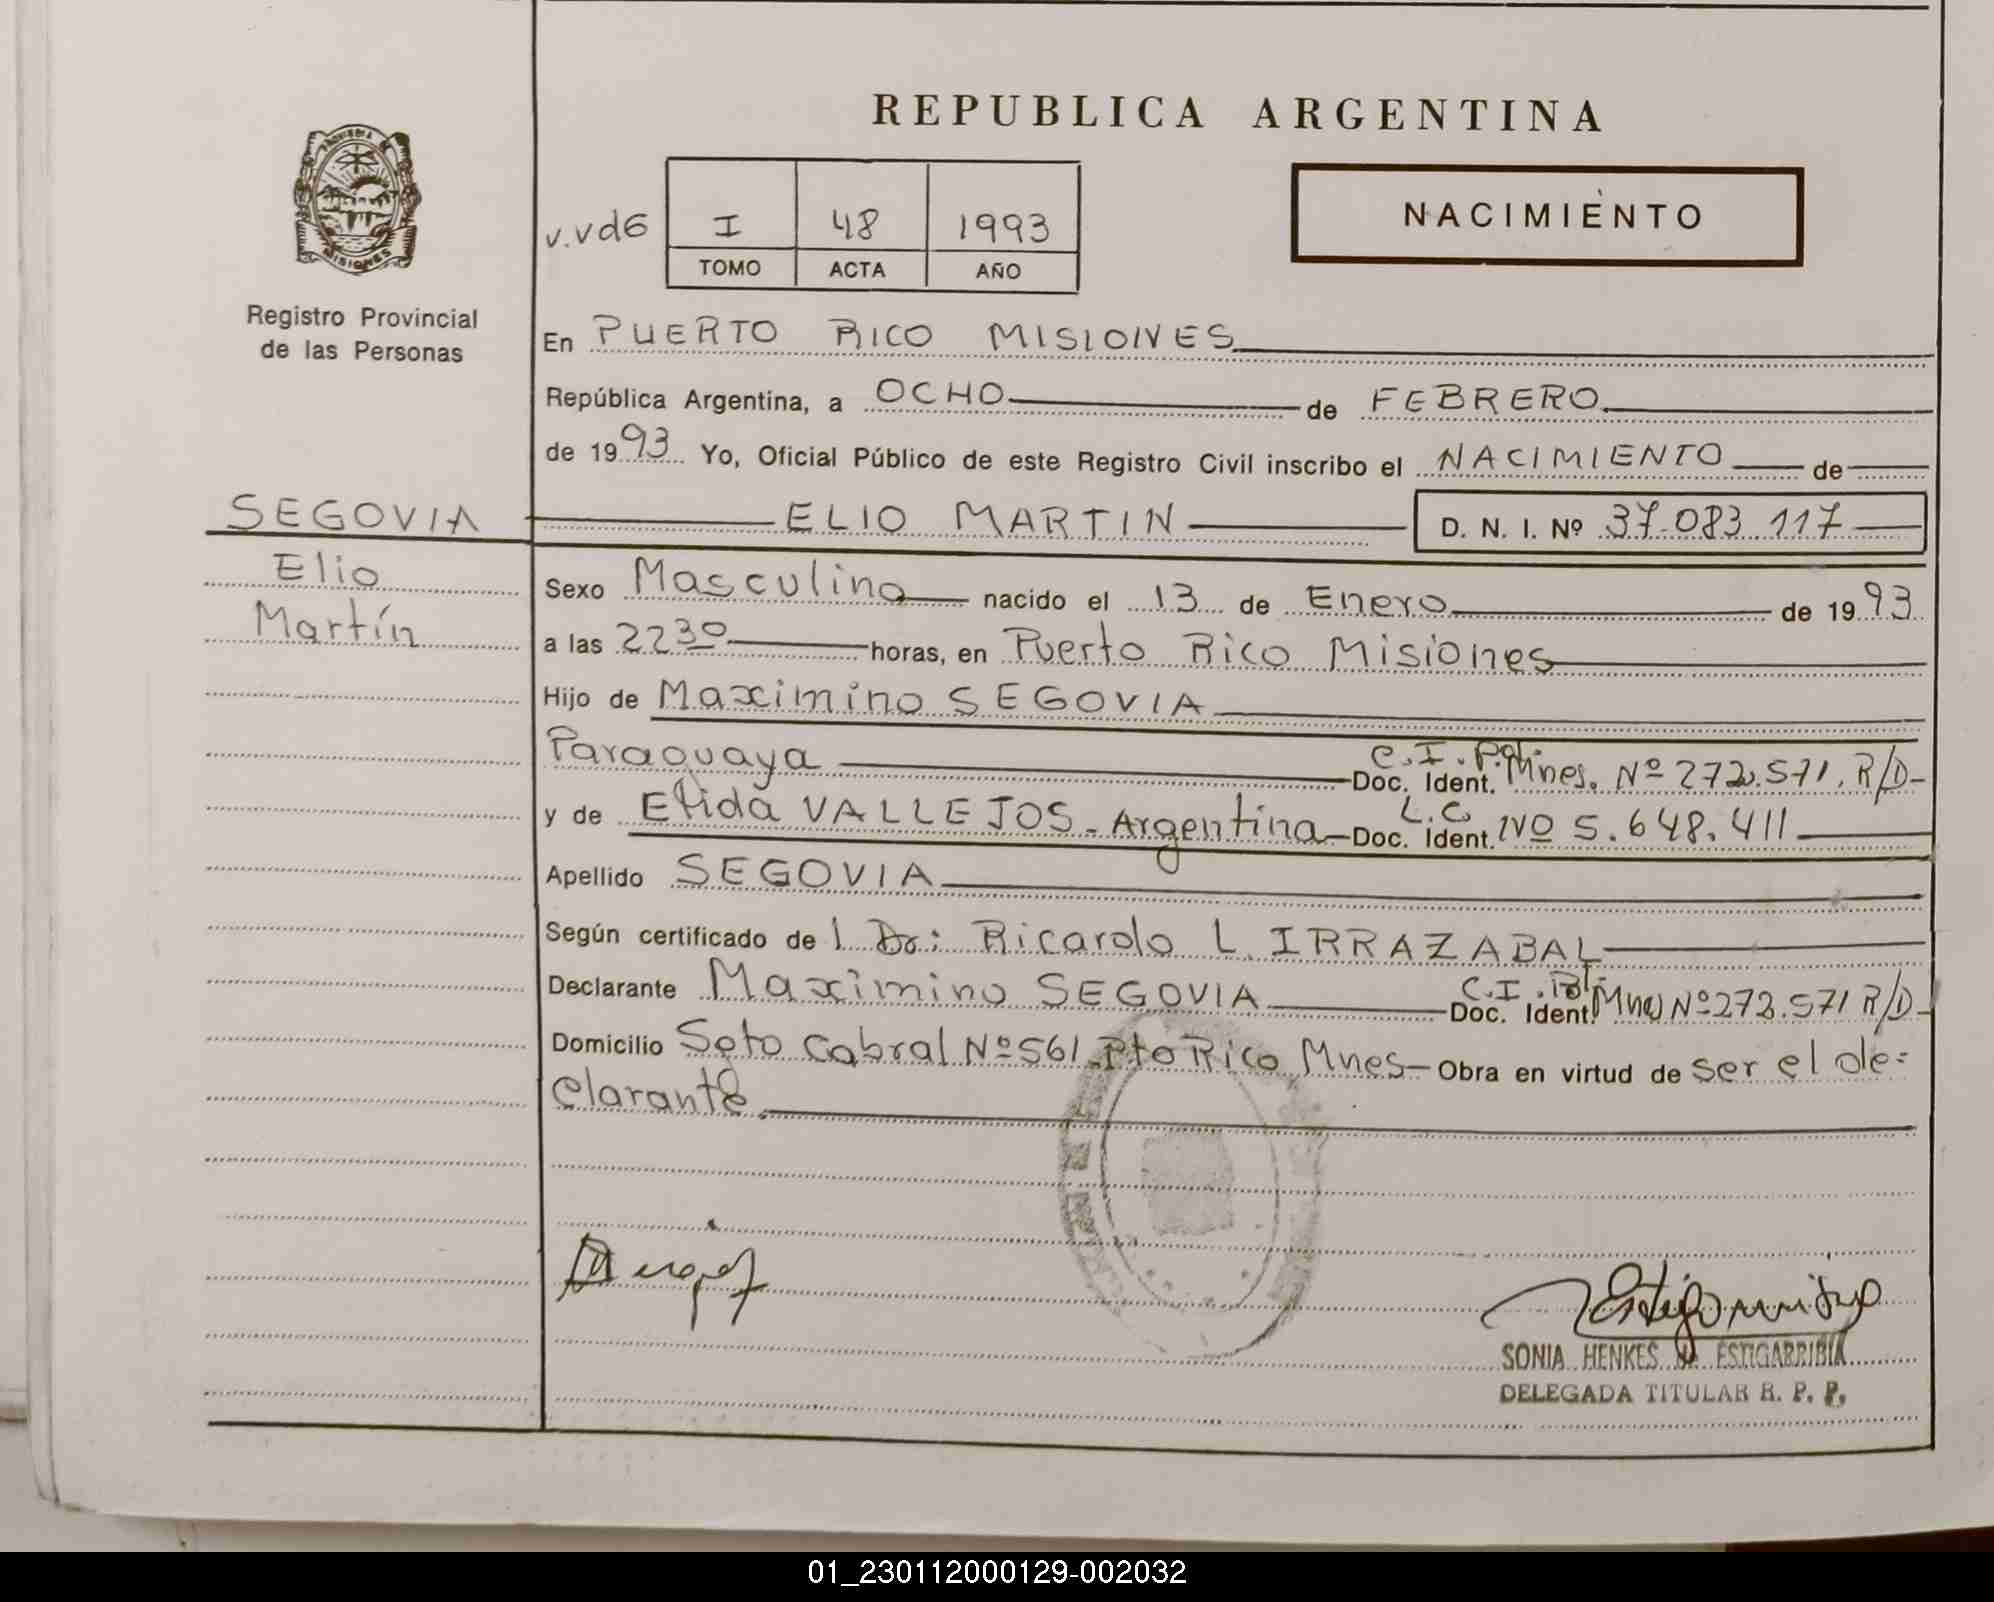 REPUBLICA ARGENTINA
PROVINCIA DE MISIONES
Registro Provincial
de las Personas
I 48 1993
TOMO ACTA AÑO
NACIMIENTO
En PUERTO RICO MISIONES
República Argentina, a OCHO de FEBRERO
de 1993 Yo, Oficial Público de este Registro Civil inscribo el NACIMIENTO de
SEGOVIA ELIO MARTIN D. N. I. Nº 37.083.117
Elio
Martín
Sexo Masculino nacido el 13 de Enero de 1993
a las 2230 horas, en Puerto Rico Misiones
Hijo de Maximino SEGOVIA
Paraguaya Doc. Ident. C.I. Pol. Mnes. Nº 272.571. R/D-
y de Elida VALLEJOS - Argentina - Doc. Ident. L.C. Nº 5.648.411
Apellido SEGOVIA
Según certificado de l Dr: Ricardo L. IRRAZABAL
Declarante Maximino SEGOVIA Doc. Ident. C.I. Pol. Mnes Nº 272.571 R/D-
Domicilio Sgto Cabral Nº 561 Pto Rico Mnes- Obra en virtud de ser el de=
clarante
SONIA HENKES de ESTIGARRIBIA
DELEGADA TITULAR R. P. P.
01_230112000129-002032